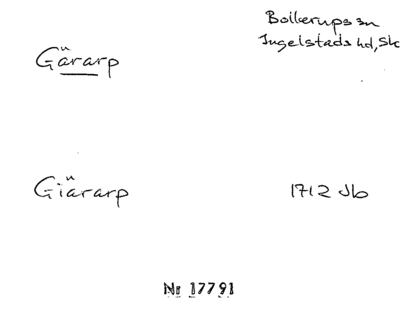 Gärarp
Bollerups sn
Ingelstads hd, Sk
Giärarp
1712 Jb
Nr 17791